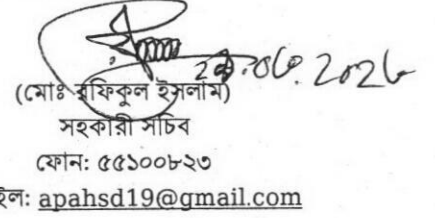 (মোঃ রফিকুল ইসলাম)
সহকারী সচিব
ফোন: ৫৫১০০৮২৩
ইল: apahsd19@gmail.com